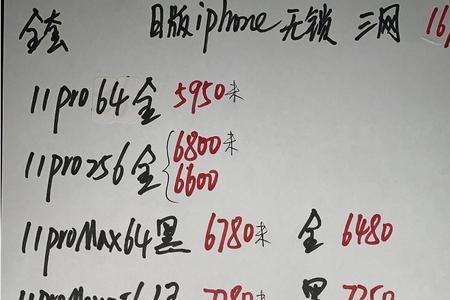 全套 日版iphone 无锁 三网 16
11pro 64 金 5950 未
11pro 256 金 6800 未
6600
11proMax64 黑 6780 未 金 6480